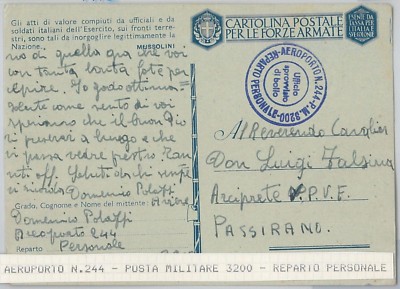 Gli atti di valore compiuti da ufficiali e da
soldati italiani dell'Esercito, sui fronti terre-
stri, sono tali da inorgoglire legittimamente la
Nazione.
MUSSOLINI
no di quello qua che voi
con tanta bontà
capire. Io godo ottima
salute come sento di voi
speriamo che il buon Dio
ci a lungo e che
ci possa vedere presto.
Saluti da chi sempre
vi ricorda Domenico
Grado, Cognome e Nome del mittente: Aviere
Domenico
Aeroporto 244
Reparto Personale
CARTOLINA POSTALE
PER LE FORZE ARMATE
ESENTE DA
TASSA PER
REPARTO PERSONALE - AEROPORTO N. 244 - P.M. 3200
Ufficio
sprovvisto
di bollo
Al Reverendo
Don Luigi Falsina
Arciprete V.P.V.F.
PASSIRANO.
AEROPORTO N.244 - POSTA MILITARE 3200 - REPARTO PERSONALE